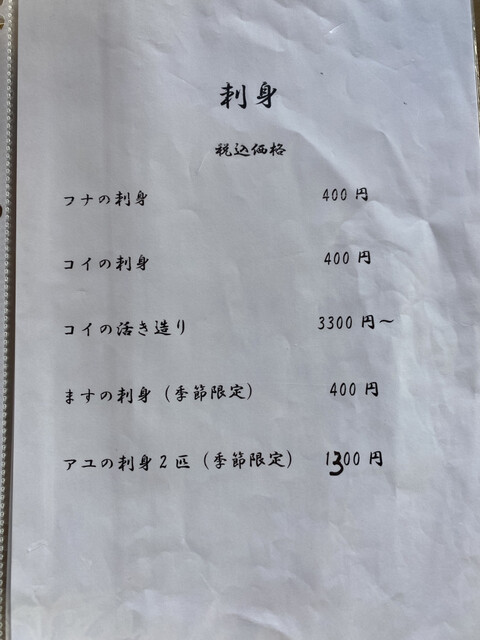 刺身
税込価格
フナの刺身 400円
コイの刺身 400円
コイの活き造り 3300円～
ますの刺身（季節限定） 400円
アユの刺身2匹（季節限定） 1300円